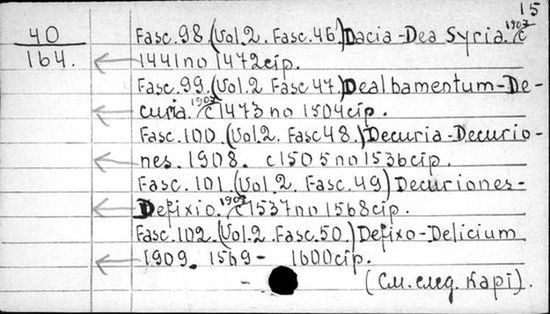 15
40
164.
Fasc. 98. (Vol. 2. Fasc. 46.) Dacia - Dea Syria. 1907. с
1441 по 1472 стр.
Fasc. 99. (Vol. 2. Fasc 47.) Dealbamentum - De-
curia. 1907. с 1473 по 1504 стр.
Fasc. 100. (Vol. 2. Fasc 48.) Decuria - Decurio-
nes. 1908. с 1505 по 1536 стр.
Fasc. 101. (Vol. 2. Fasc. 49) Decuriones -
Defixio. 1909. с 1537 по 1568 стр.
Fasc. 102. (Vol. 2. Fasc. 50.) Defixo - Delicium
1909. 1569 - 1600 стр.
- (См. след. карт).